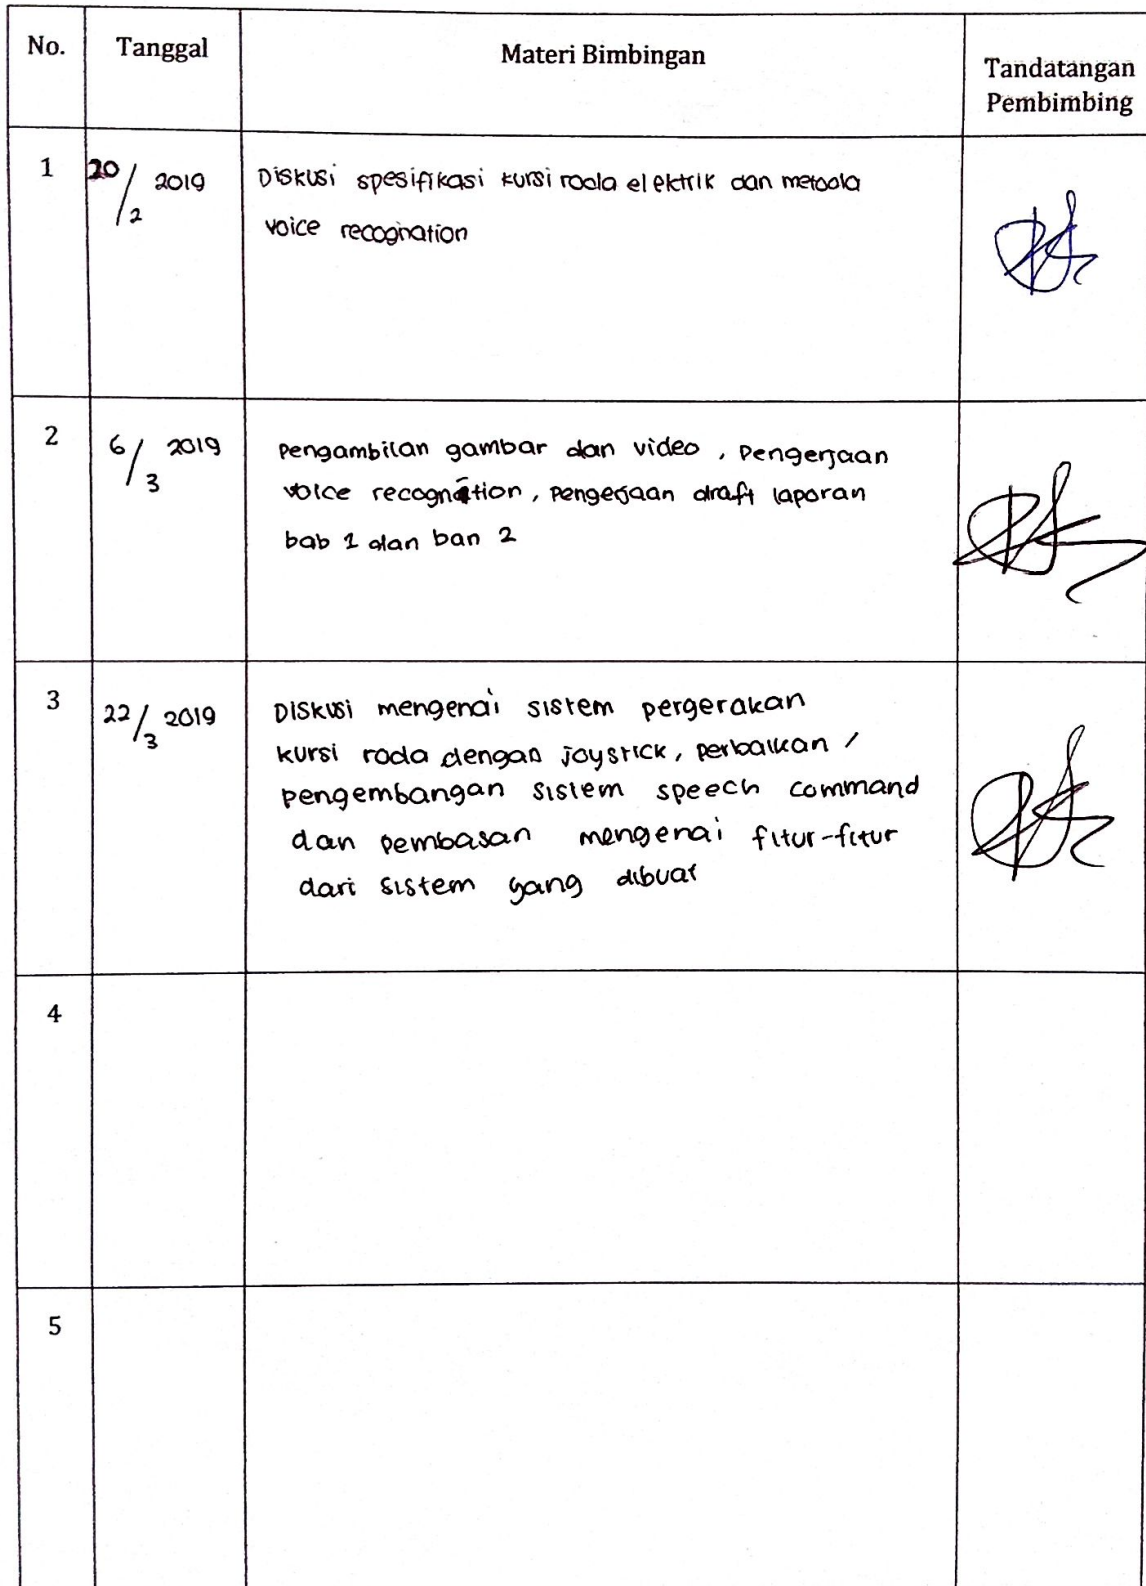 No. Tanggal Materi Bimbingan Tandatangan
Pembimbing
1 20/2 2019 Diskusi spesifikasi kursi roda elektrik dan metoda
voice recognation
2 6/3 2019 Pengambilan gambar dan video, Pengerjaan
voice recognation, pengerjaan draft laporan
bab 1 dan ban 2
3 22/3 2019 Diskusi mengenai sistem pergerakan
kursi roda dengan joystick, perbaikan /
pengembangan sistem speech command
dan pembasan mengenai fitur-fitur
dari sistem yang dibuat
4
5